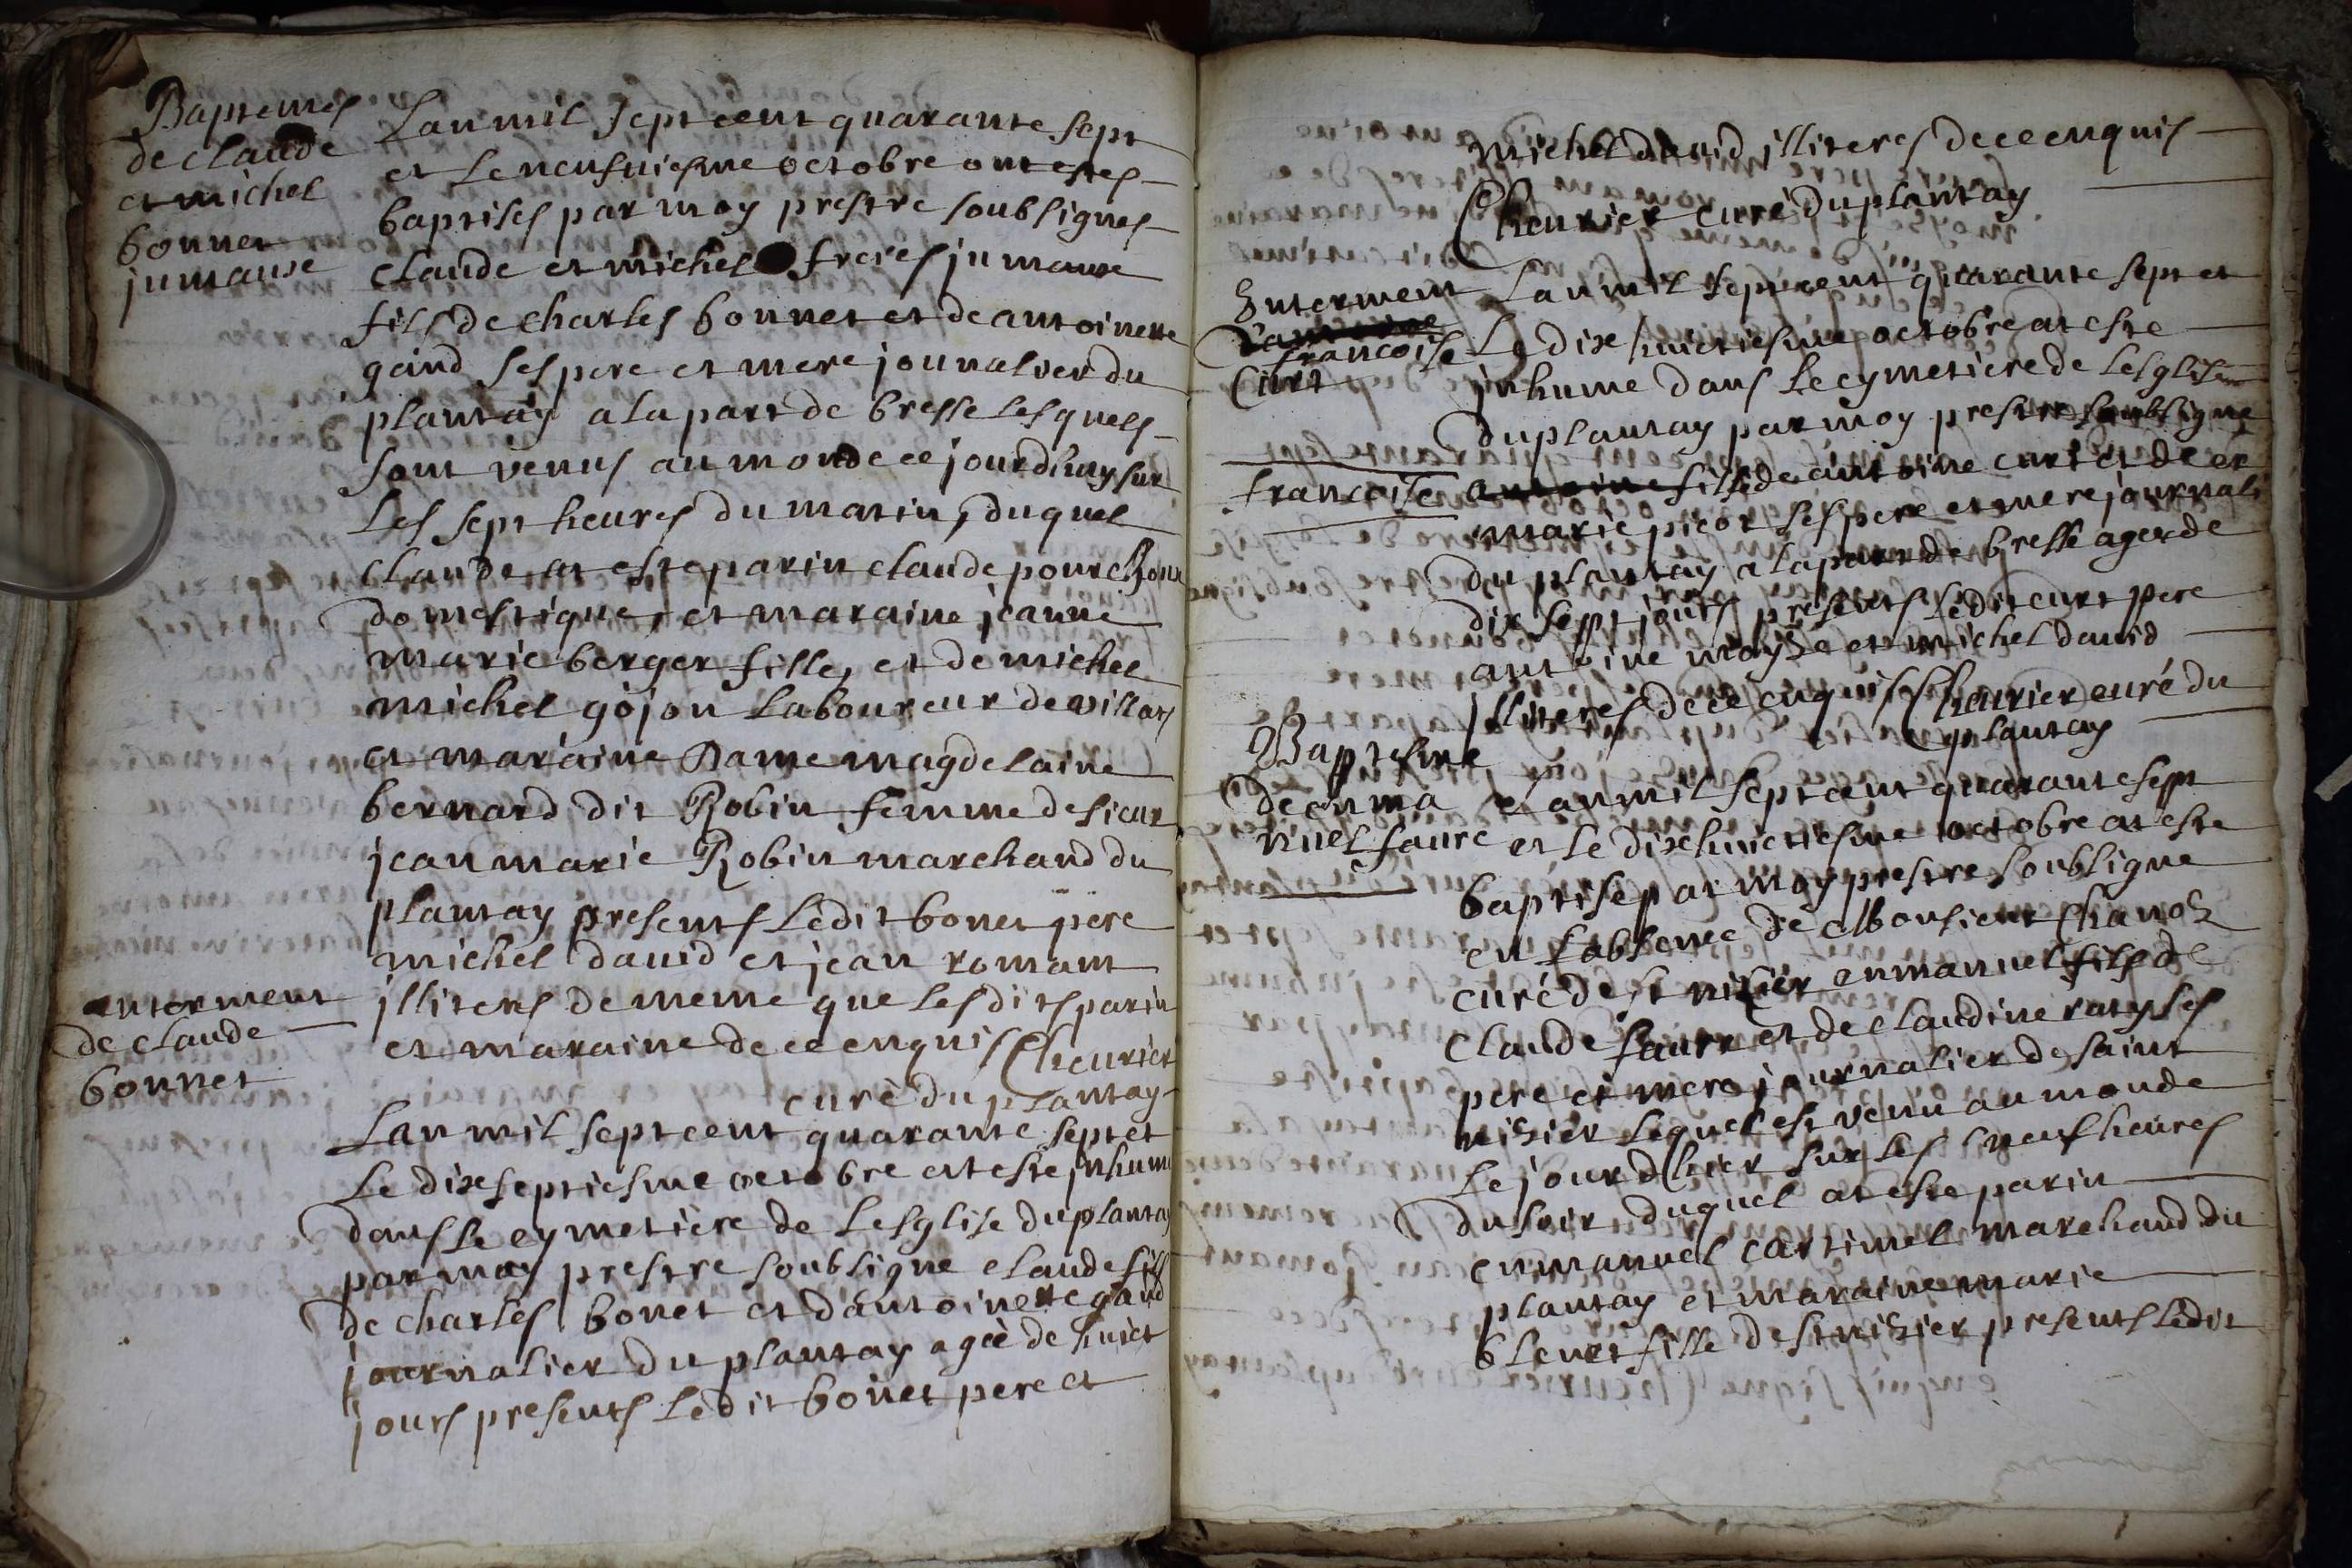 Baptemes
de claude
et michel
bonnet
jumause
Lan mil sept cent quarante sept
et le neufviesme octobre ont estes
baptises par moy prestre soubsignes
claude et michel freres jumause
fils de charles bonnet et de antoinette
gaind ses pere et mere journalier du
plantay a la part de bresse lesquels
sont venus au monde ce jourdhuy sur
les sept heures du matin, duquel
claude at este parin claude
domestique, et maraine jeanne
marie berger fille, et de michel
michel gojon laboureur de villars
et maraine Dame magdelaine
bernard dit Robin femme de sieur
jean marie Robin marchand du
plantay presents ledit bonet pere
michel david et jean romant
illiteres de meme que lesdits parin
et maraine de ce enquis Cheurier
curé du plantay
enterment
de claude
bonnet
Lan mil sept cent quarante sept et
le dixseptiesme octobre at este inhumé
dans le cymetière de lesglise du plantay
par moy prestre soubsigne claude fils
de charles bonet et dantoinette gaind
journalier du plantay agéè de huict
jours presents ledit bonet pere et
michel david illiteres de ce enquis
Cheurier curé du plantay
Enterment
francoise
Curt
Lan mil sept cent quarante sept et
le dixhuictiesme octobre at este
inhume dans le cymetiere de lesglise
du plantay par moy prestre soubsigne
francoise antoine fille de antoine curt et de
marie picot ses pere et mere journali
du plantay a la part de bresse ageede
dix sept jours presents ledit curt pere
antoine moyse et michel david
illiteres de ce enquis Cheurier curé du
plantay
Baptesme
de enma
nuel faure
Lan mil sept cent quarante sept
et le dixhuictiesme octobre at este
baptise par moy prestre soubsigne
en labsence de Monsieur Chanoz
curé de st nizier enmanuel fils de
claude faure et de claudine raty ses
pere et mere journalier de saint
nizier lequel est venu au monde
le jour dhier sur les neuf heures
du soir duquel at este parin
enmanuel cartinel marchand du
plantay et maraine marie
bleurt fille de st nizier presents ledit